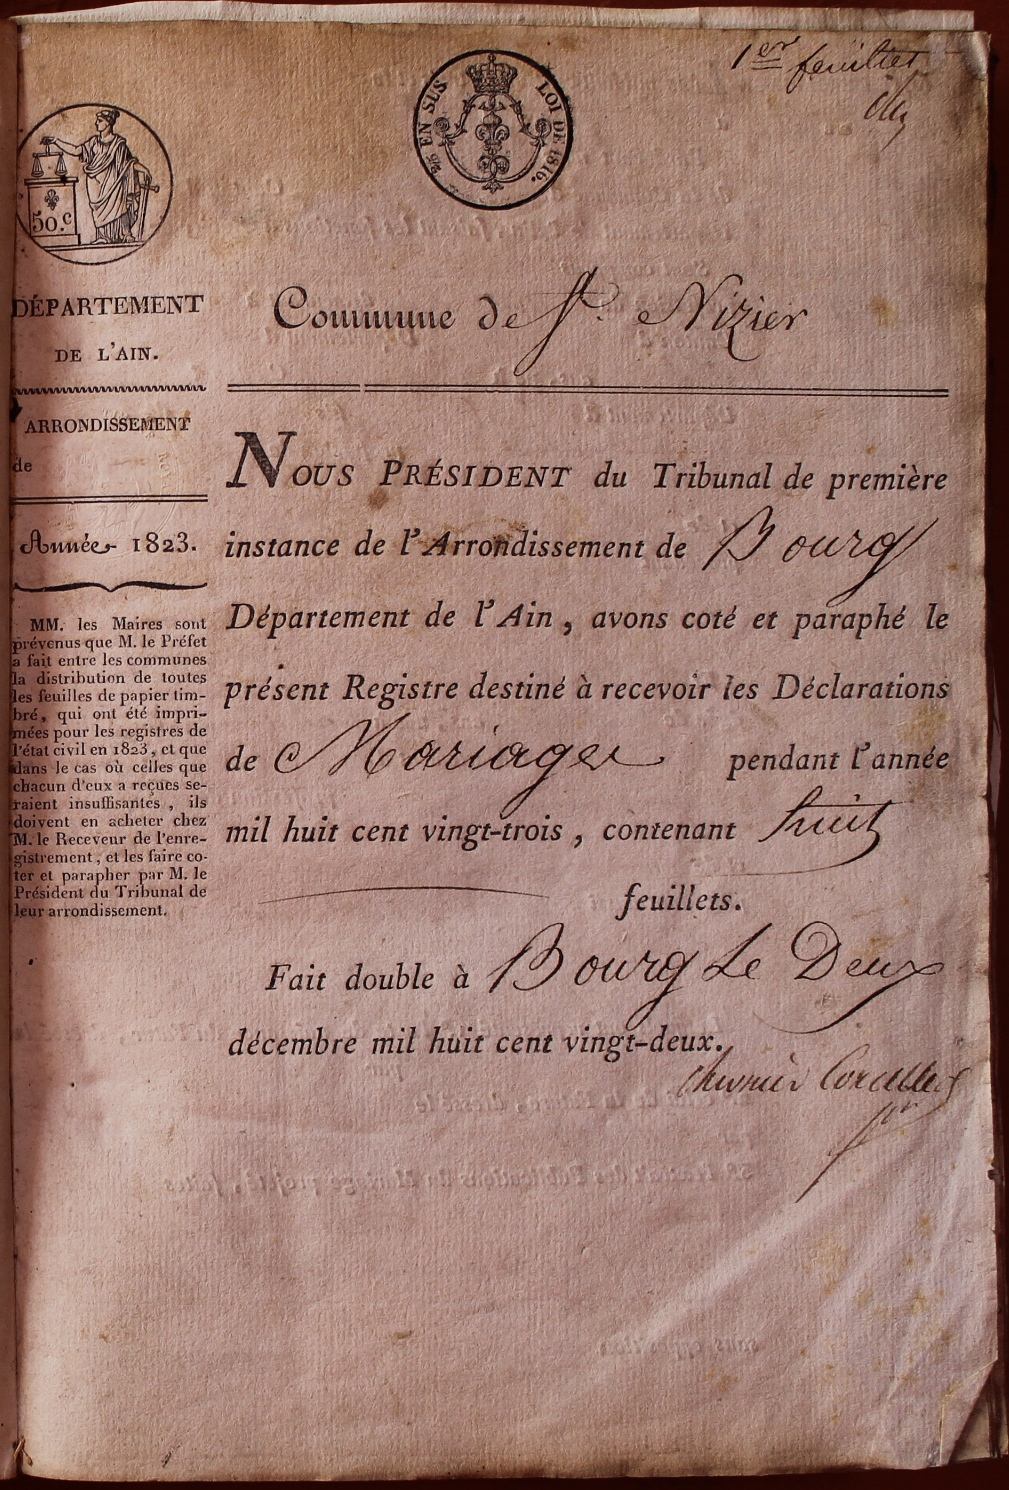 1er feuillet
EN SUS LOI DE 1816.
50.c
DÉPARTEMENT
DE L'AIN.
ARRONDISSEMENT
de
Année 1823.
MM. les Maires sont
prévenus que M. le Préfet
a fait entre les communes
la distribution de toutes
les feuilles de papier tim-
bré, qui ont été impri-
mées pour les registres de
l'état civil en 1823, et que
dans le cas où celles que
chacun d'eux a reçues se-
raient insuffisantes, ils
doivent en acheter chez
M. le Receveur de l'enre-
gistrement, et les faire co-
ter et parapher par M. le
Président du Tribunal de
leur arrondissement.
Commune de St. Nizier
NOUS PRÉSIDENT du Tribunal de première
instance de l'Arrondissement de Bourg
Département de l'Ain, avons coté et paraphé le
présent Registre destiné à recevoir les Déclarations
de Mariages pendant l'année
mil huit cent vingt-trois, contenant huit
feuillets.
Fait double à Bourg Le Deux
décembre mil huit cent vingt-deux.